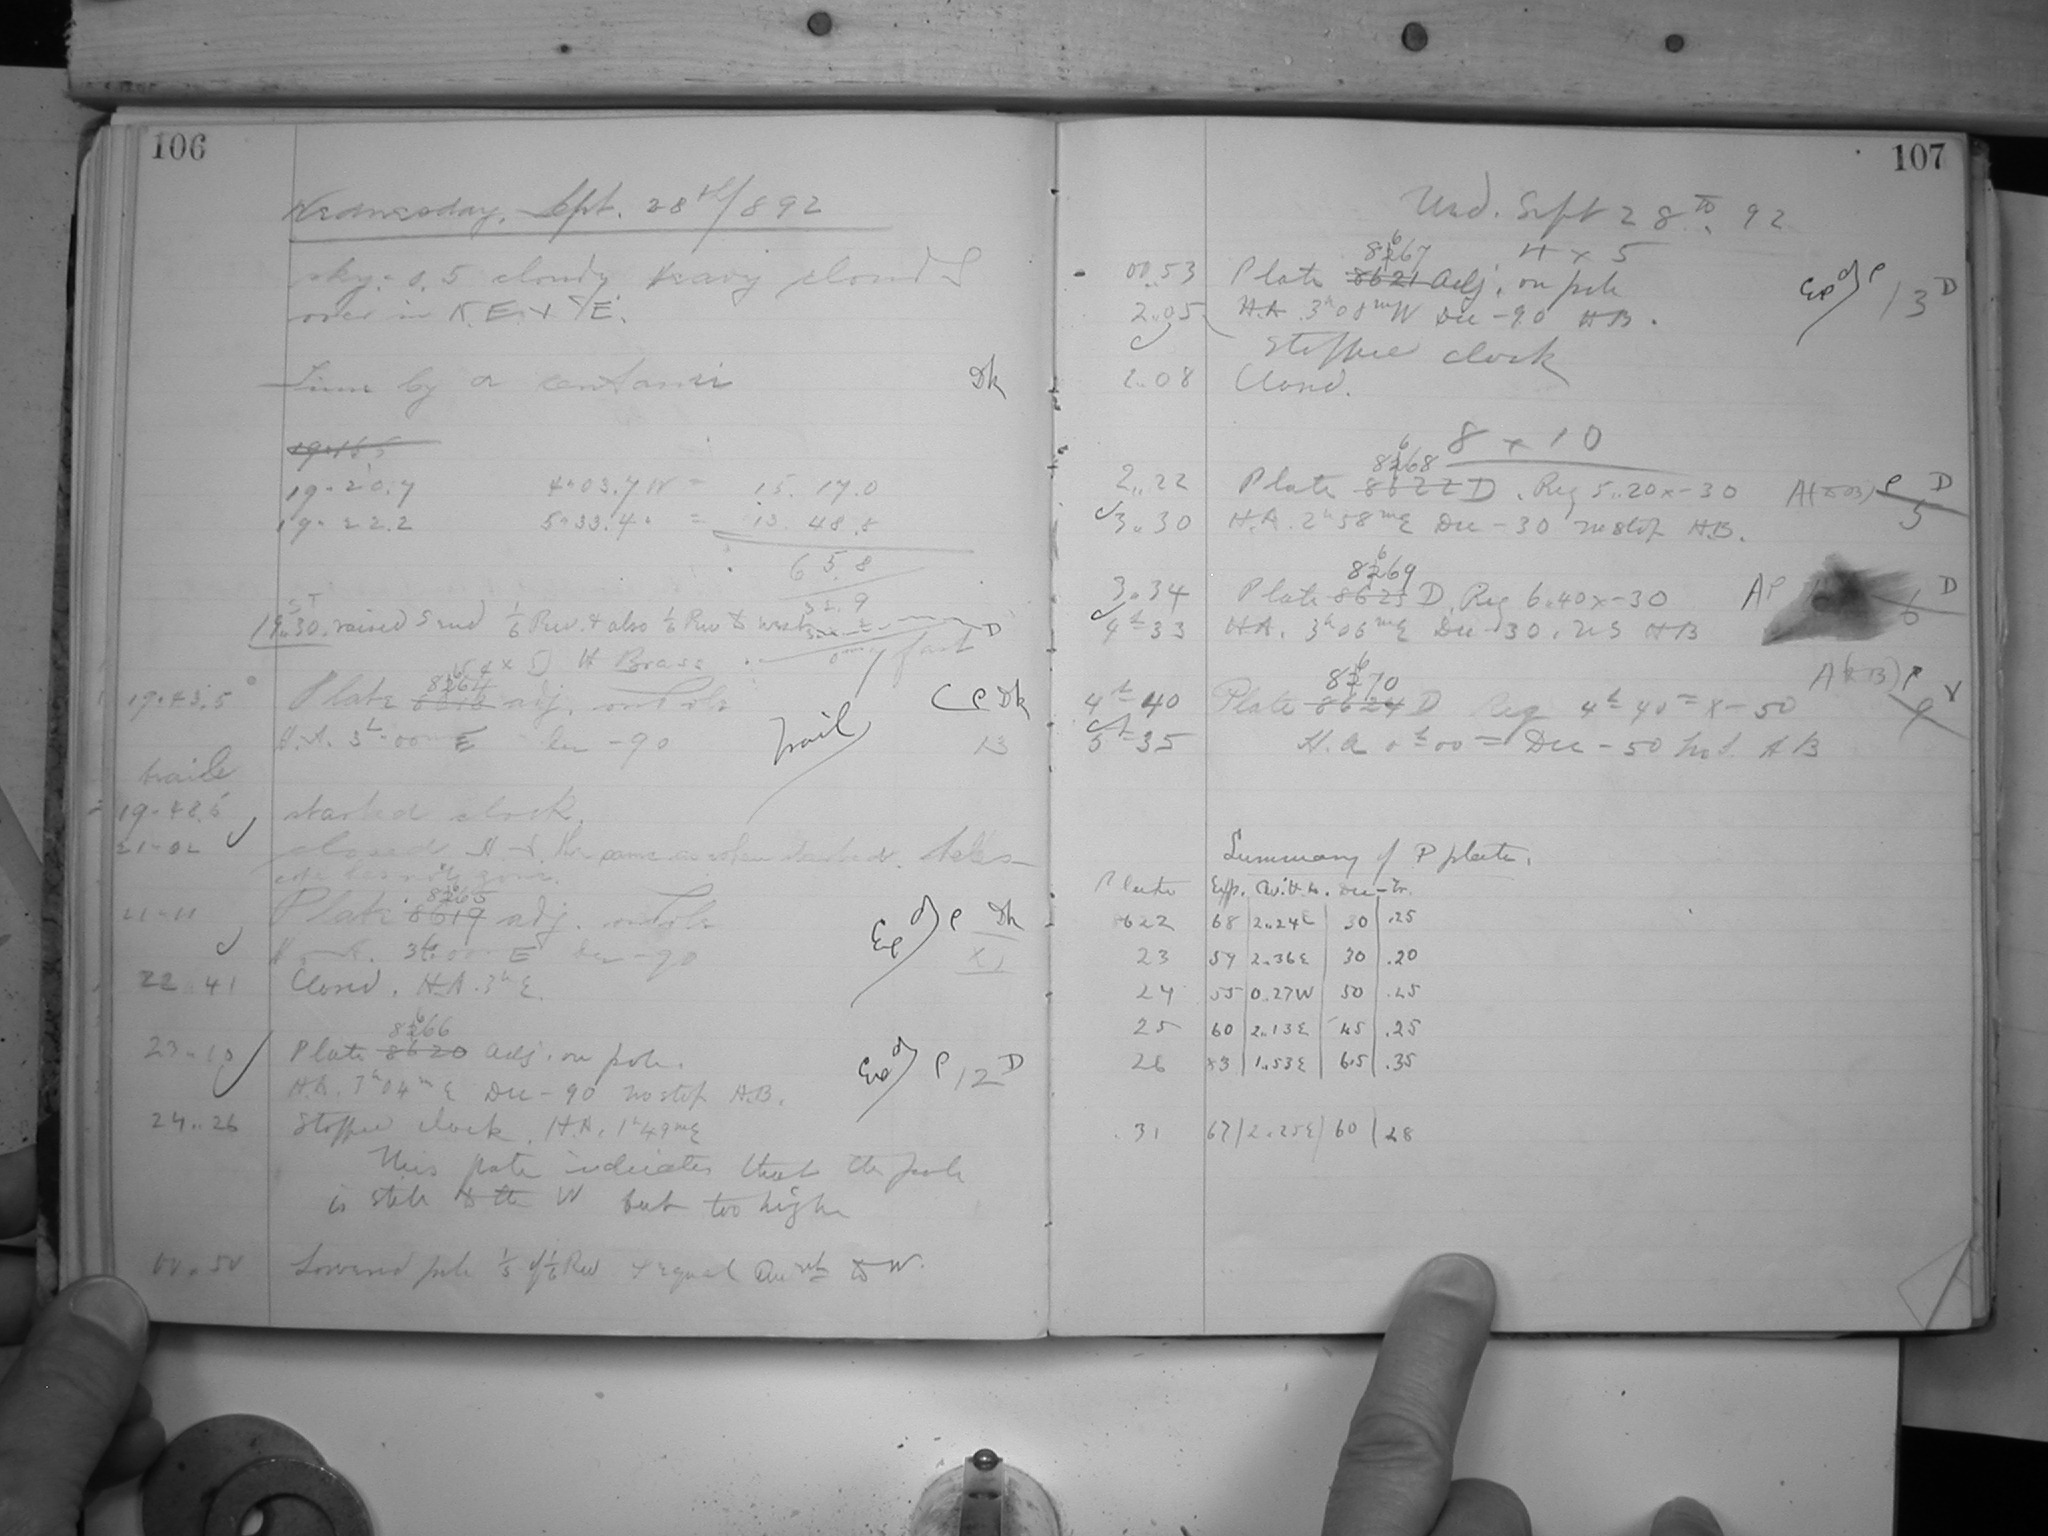 106
Wednesday, Sept. 28th/892
sky: 0.5 cloudy heavy clouds
over in N.E. & SE.
Time by α centauri Dk
19.16.5
19.20.7 4.03.7 W = 15.17.0
19.22.2 5.33.4 = 13.48.8
65.8
32.9
19.30. raised S end 1/6 Rev. & also 1/6 Rev to west D
fast
4 x 5
8664
19.43.5 Plate 8618 adj. on Pole CP Dk
H.A. 3h 00m E Dec -90 trail 13
trails
19.48.5 started clock.
21.02 closed H.A. the same as when started.
8665
Plate 8619 adj. on Pole Exp of P Dk
H.A. 3h 00 E Dec -90
22.41 Closed. H.A. 3h E.
8666
23.10 Plate 8620 Adj. on pole. Exp of P 12 D
H.A. 3h04m E Dec -90 no stop H.B.
24.26 Stopped clock. H.A. 1h49m E
This plate indicates that the pole
is still to the W but too high
00.50 Lowered pole 1/3 of 1/6 Rev & equal Am't to W.
107
Wed. Sept 28th 92
8667 4 x 5
00.53 Plate 8621 Adj. on pole Exp of P 13 D
2.05 H.A. 3h08m W Dec -90 HB.
Stopped clock
2.08 Closed.
8668 8 x 10
2.22 Plate 8622 D. Reg 5.20 x -30 P D
3.30 H.A. 2h58m E Dec -30 no stop H.B. 5
8669
3.34 Plate 8623 D. Reg 6.40 x -30 AP D
4h 33 H.A. 3h06m E Dec -30. NS HB 6
8670
4h 40 Plate 8624 D Reg 4h 40m x -50 P
5h 35 H.A. 0h 00m Dec -50 no S. HB
Summary of P plates.
Plate Exp. Dec
8622 68 2.24E 30 .25
23 59 2.36E 30 .20
24 55 0.27W 50 .25
25 60 2.13E 45 .25
26 1.53E 65 .35
31 67 2.25E 60 28